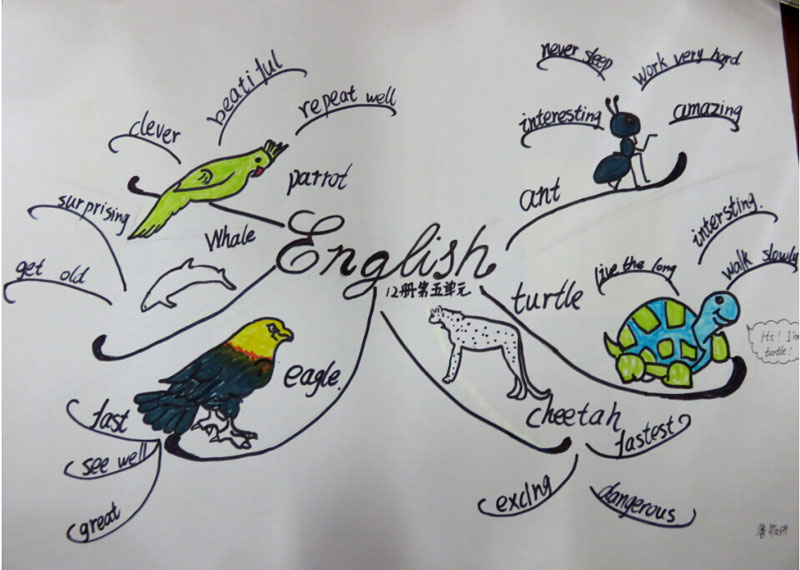 English
12册第五单元
parrot
clever
beatiful
repeat well
Whale
surprising
get old
eagle.
fast
see well
great
ant
never sleep
work very hard
interesting
amazing
turtle
live the long
intersting.
walk slowly
Hi! I'm
turtle!
cheetah
fastest
exclng
dangerous